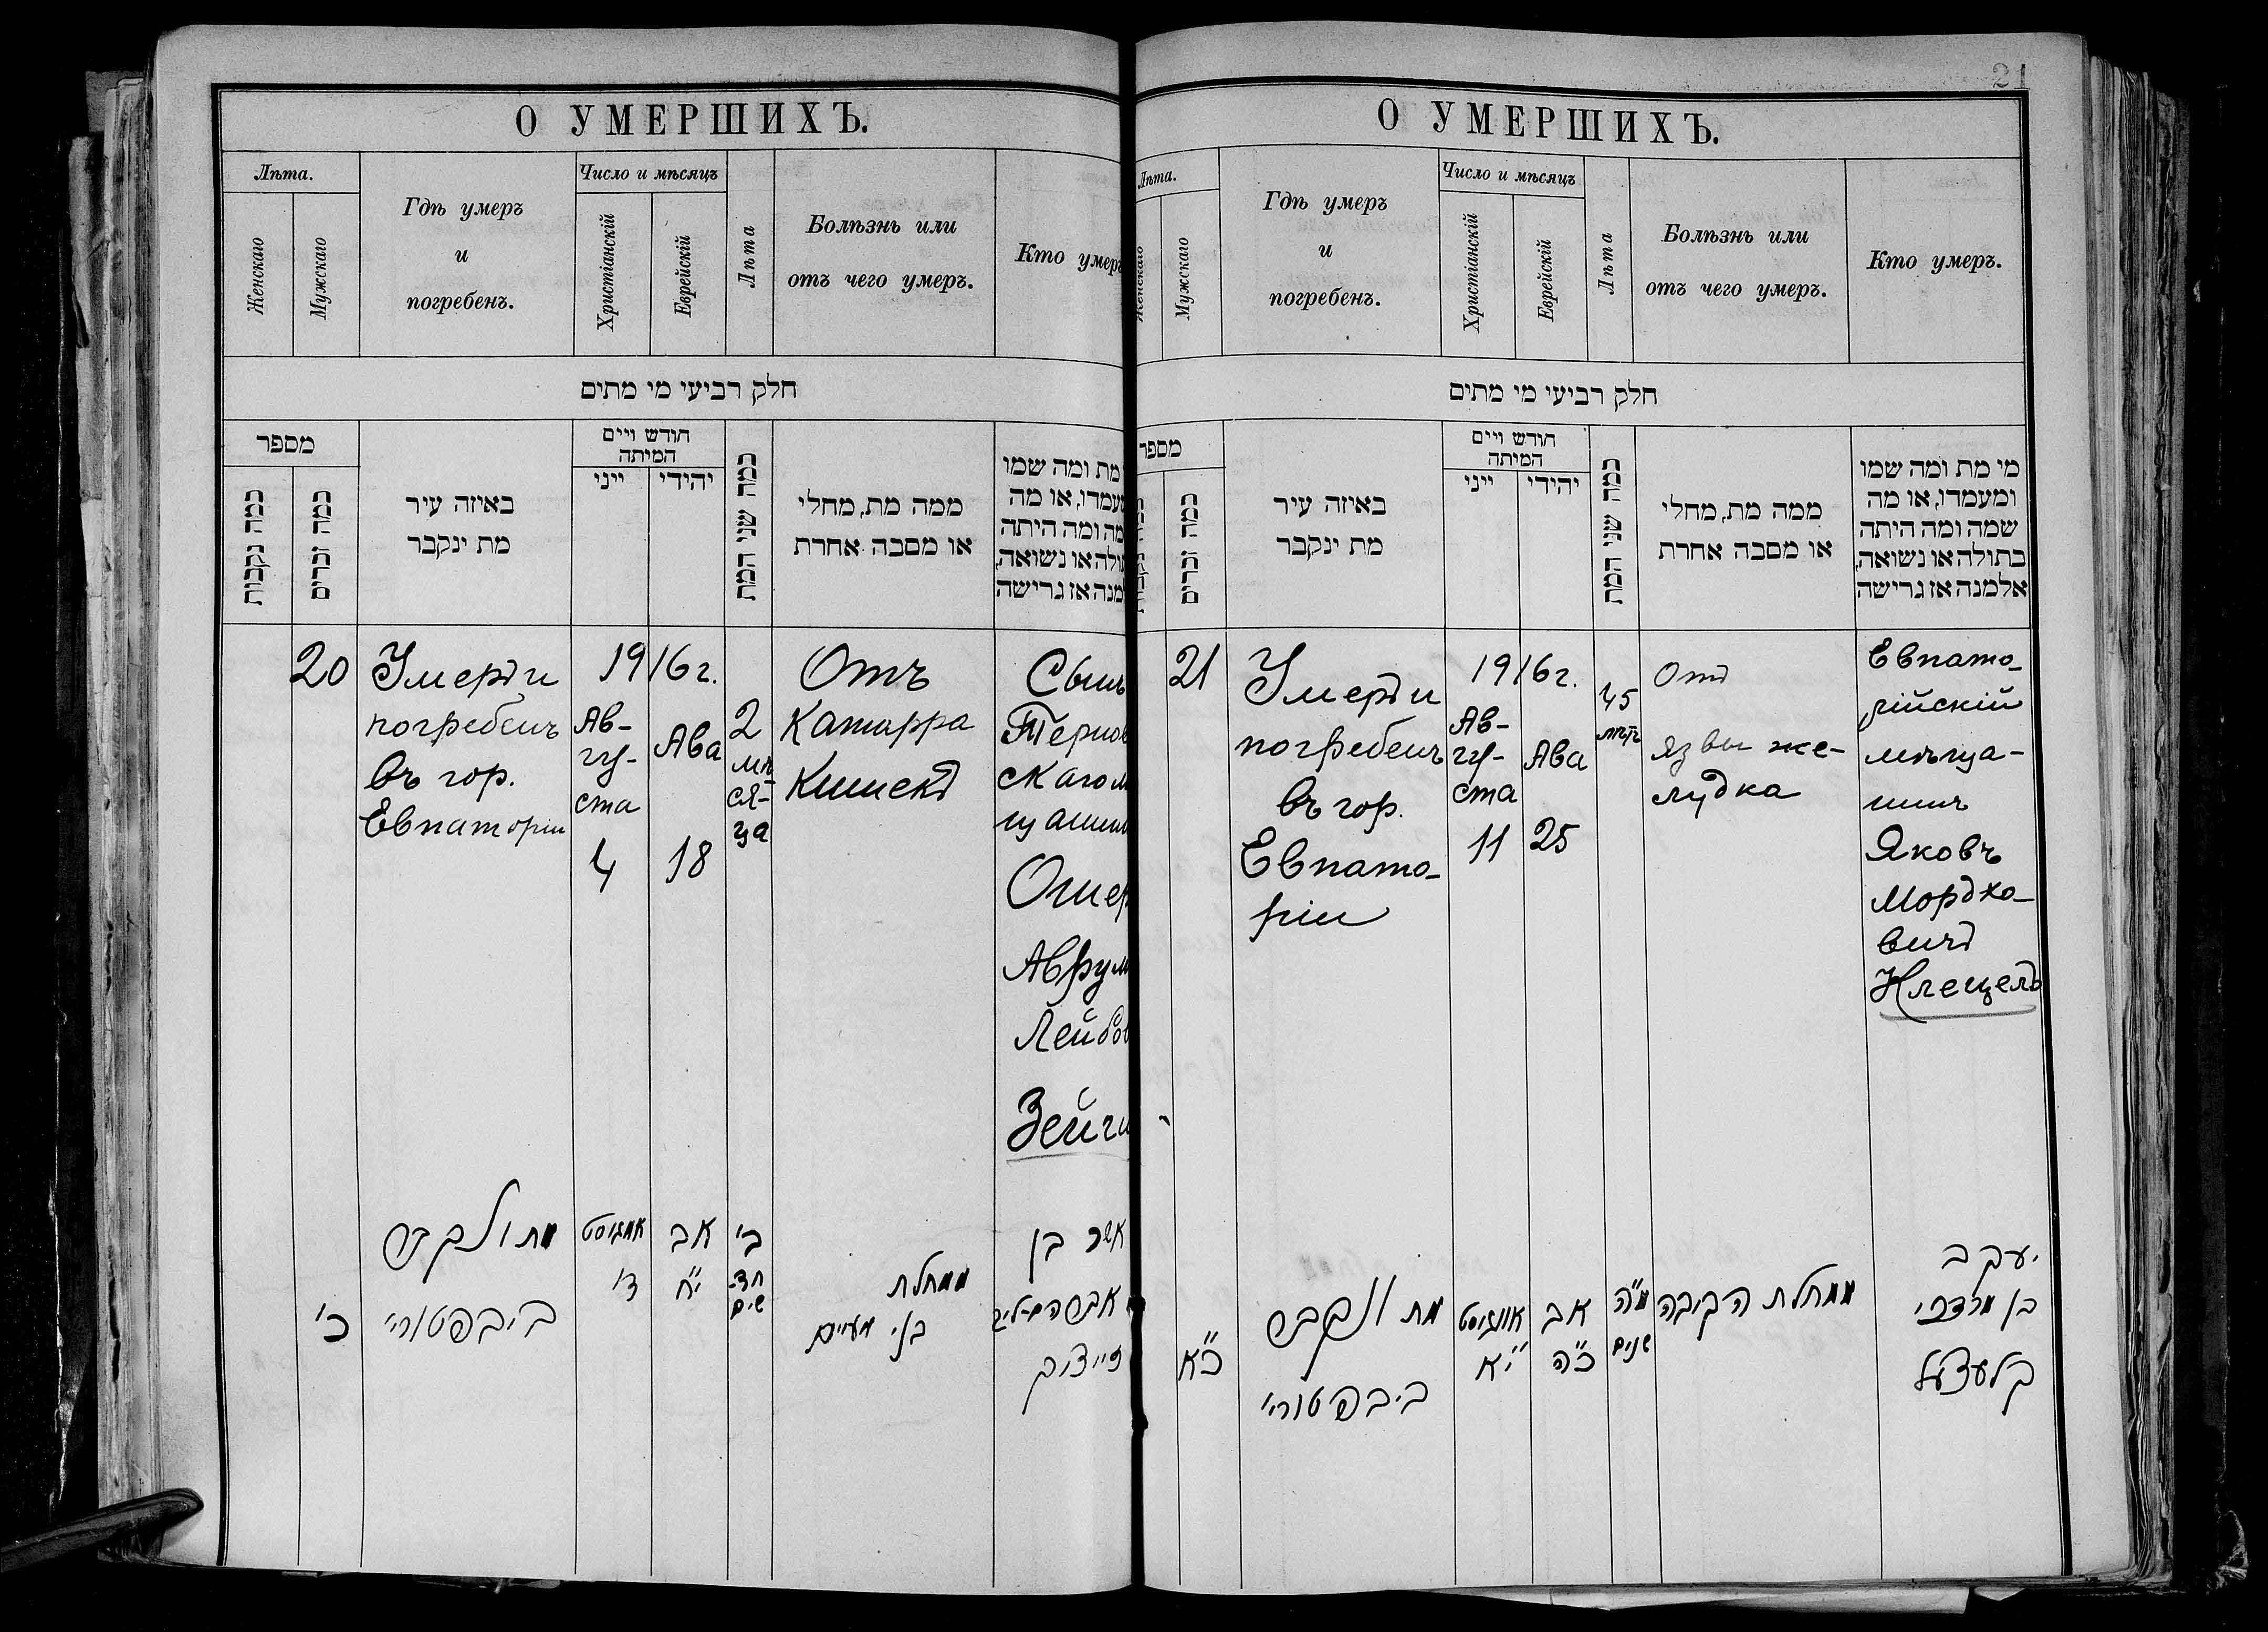 О УМЕРШИХЪ.
Лѣта.
Женскаго
Мужскаго
Гдѣ умеръ
и
погребенъ.
Число и мѣсяцъ
Христіанскій
Еврейскій
Лѣта
Болѣзнь или
отъ чего умеръ.
Кто умеръ
חלק רביעי מי מתים
מספר
כמה נקבות
כמה זכרים
באיזה עיר
מת ינקבר
חודש ויים
המיתה
ייני
יהודי
כמה שני המת
ממה מת, מחלי
או מסבה אחרת
מת ומה שמו
עמדו, או מה
מה ומה היתה
ולה או נשואה,
מנה אז גרישה
20
Умеръ и
погребенъ
въ гор.
Евпаторіи
1916 г.
Ав-
гу-
ста
4
Ава
18
2
мѣ-
ся-
ца
Отъ
Катарра
Кишекъ
Сынъ
Тернов
скаго м
щанин
Ошер
Аврум
Лейбов
אשר בן
אברהם-ליב
כ'
מת
ביבפטוריי
אוגוסט
ד'
אב
י"ח
ב'
חד-
שים
ממחלת
בני מעיים
21
О УМЕРШИХЪ.
Лѣта.
Женскаго
Мужскаго
Гдѣ умеръ
и
погребенъ.
Число и мѣсяцъ
Христіанскій
Еврейскій
Лѣта
Болѣзнь или
отъ чего умеръ.
Кто умеръ.
חלק רביעי מי מתים
מספר
כמה זכרים
באיזה עיר
מת ינקבר
חודש ויים
המיתה
ייני
יהודי
כמה שני המת
ממה מת, מחלי
או מסבה אחרת
מי מת ומה שמו
ומעמדו, או מה
שמה ומה היתה
בתולה או נשואה,
אלמנה אז גרישה
21
Умеръ и
погребенъ
въ гор.
Евпато-
ріи
1916 г.
Ав-
гу-
ста
11
Ава
25
45
лѣтъ
Отъ
язвы же-
лудка
Евпато-
рійскій
мѣща-
нинъ
Яковъ
Мордко-
вичъ
Клецель
כ"א
מת ונקבר
ביבפטוריי
אוגוסט
י"א
אב
כ"ה
מ"ה
שנים
ממחלת הקיבה
יעקב
בן מרדכי
קלעצעל